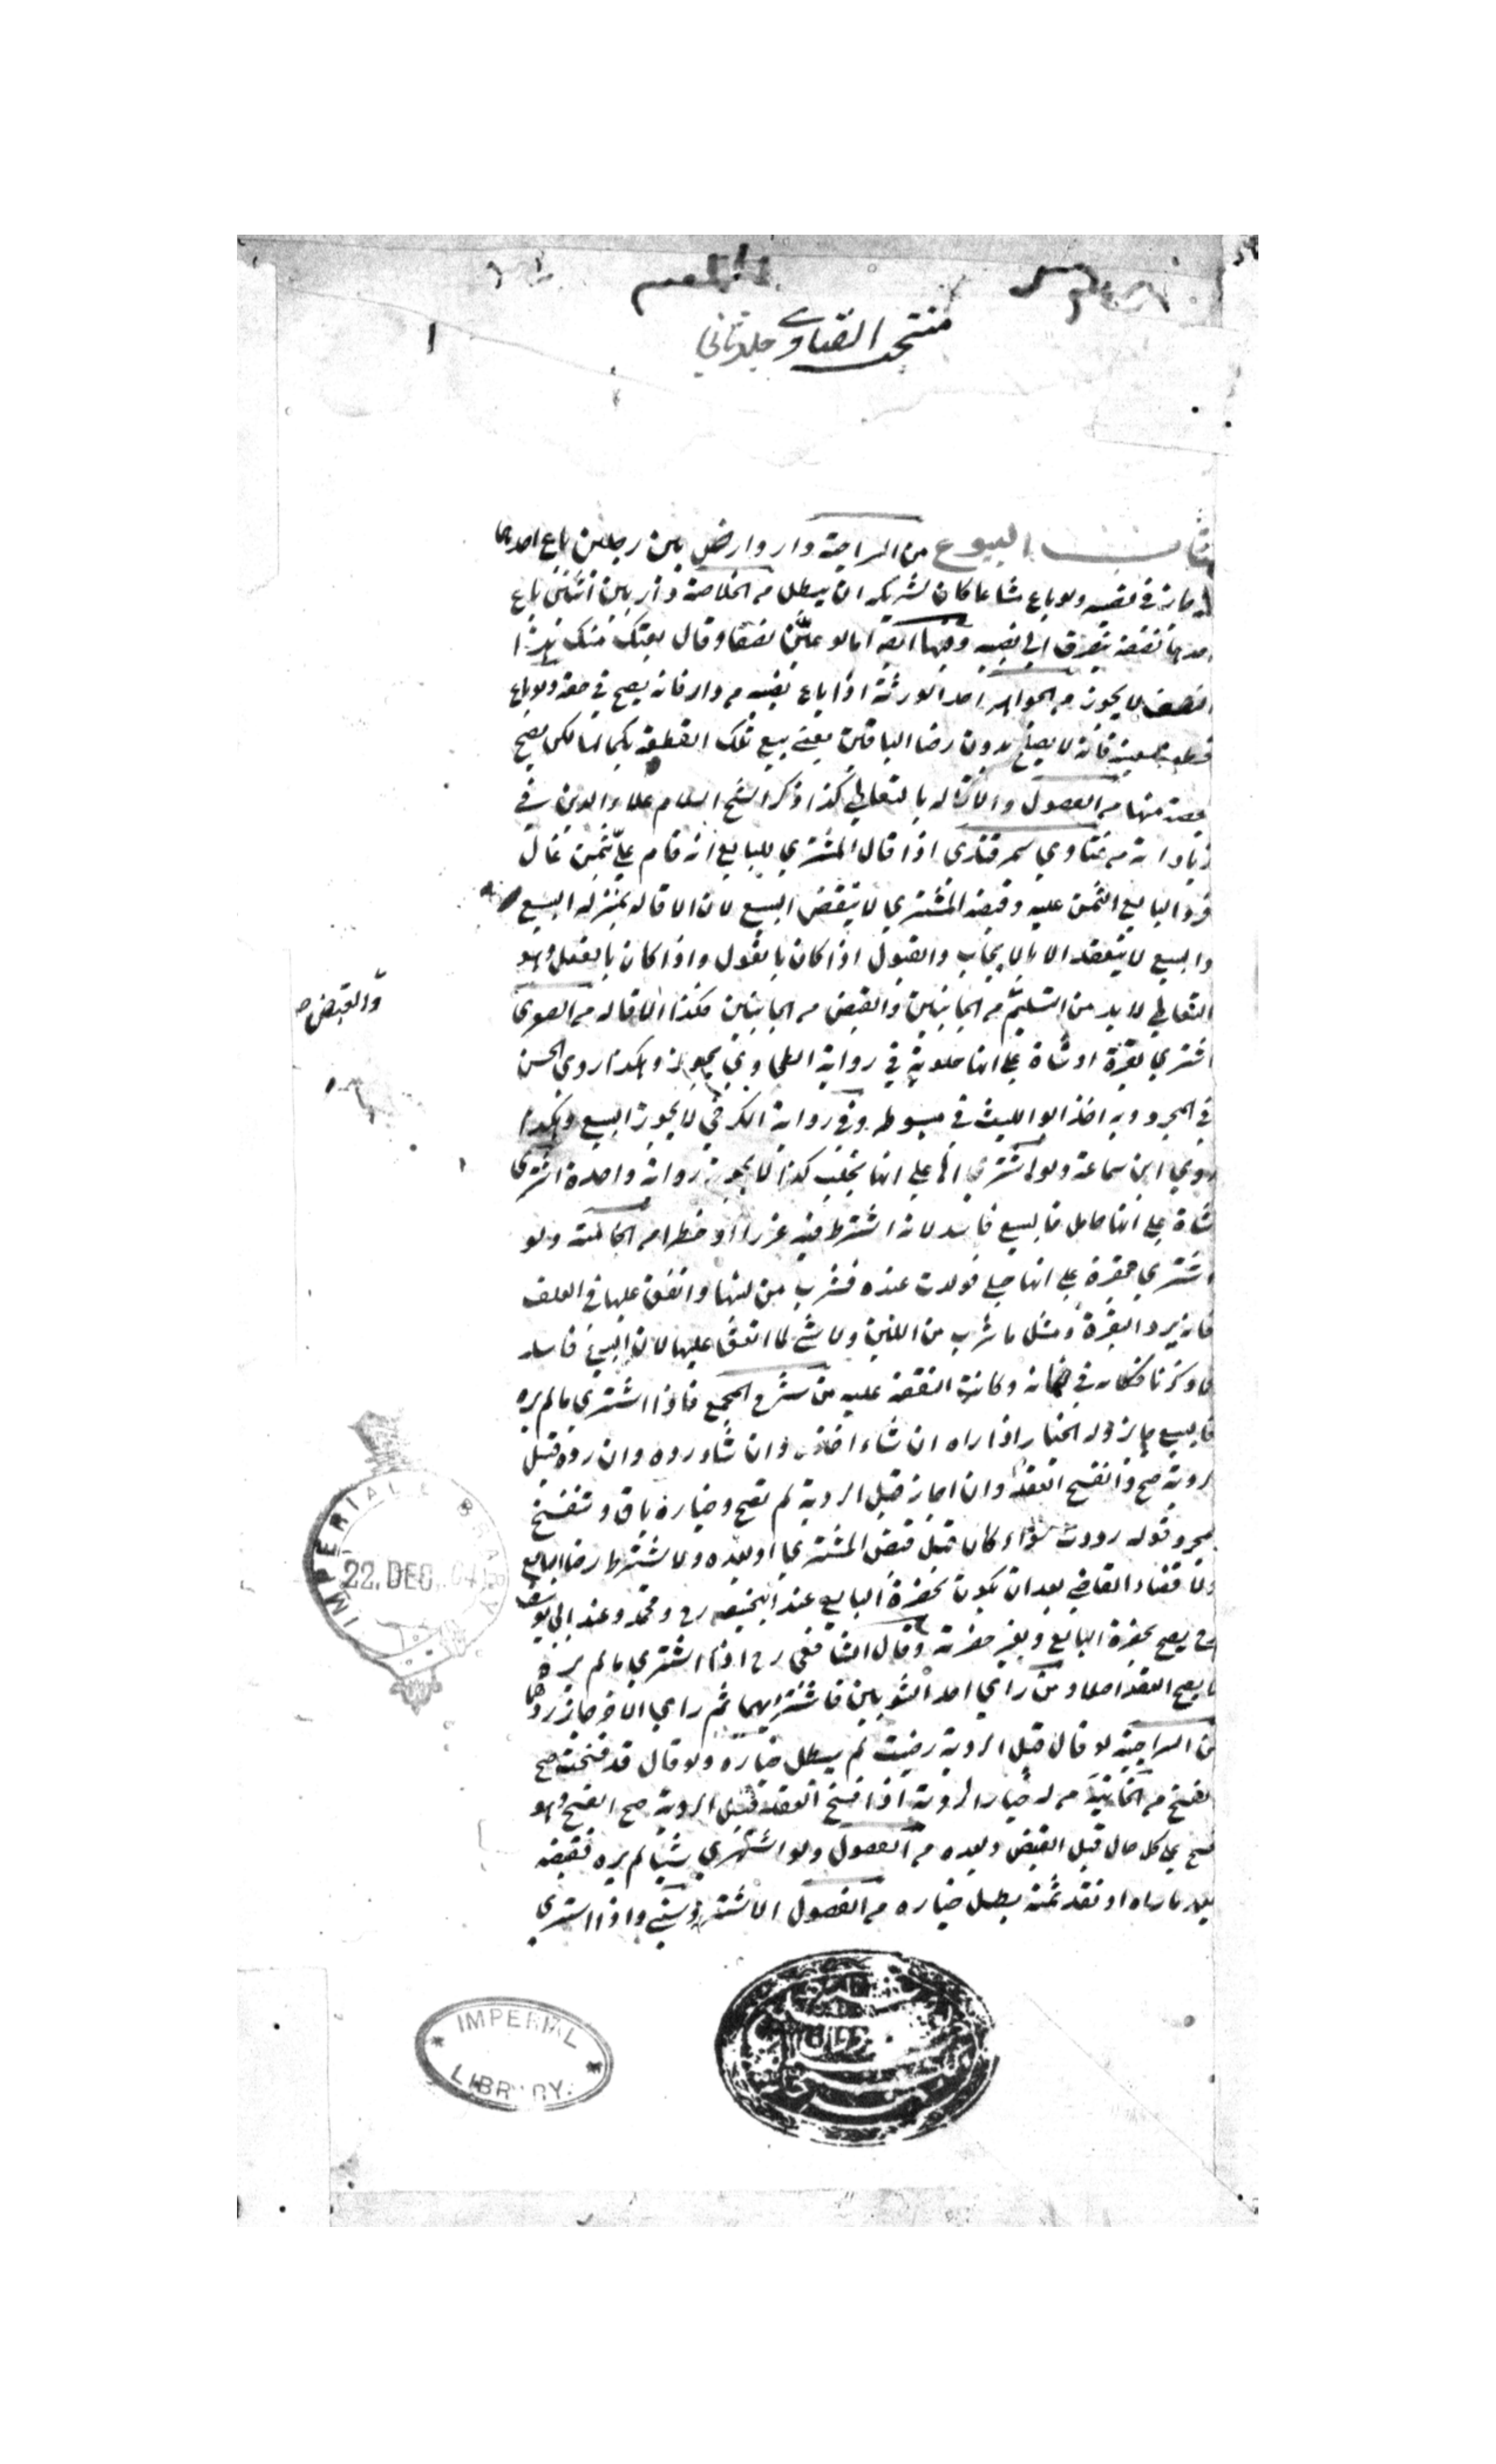 منتخب الفتاوے جلد ثاني
١
كتاب البيوع من السراجية دار وارض بين رجلين باع احدهما
جاز في نصيبه ولو باع مشاعا كان لشريكه ان يبطل من الخلاصة دار بين اثنين باع
احدهما نصفه يتصرف الي نصيبه وفيها ايضا اما لو عيّن نصفا وقال بعتك منك هذا
النصف لا يجوز من الجواهر احد الورثة اذا باع نصيبه من دار فانه يصح في حصته ولو باع
قطعة معينة فانه لا يصح بدون رضا الباقين يعني بيع تلك القطعة بكمالها لكن يصح
حصته منها من الفصول والاقالة بالتعاطي كذا ذكر الشيخ السلام علاء الدين في
زياداته من فتاوي سمرقندي اذا قال المشتري للبايع انه قام عليّ بثمن غال
فرد البايع الثمن عليه وقبضه المشتري لا ينقض البيع لان الاقالة بمنزلة البيع
والبيع لا ينعقد الا بالايجاب والقبول اذا كان بالقول واذا كان بالفعل وهو
التعاطي لا بد من التسليم من الجانبين والقبض من الجانبين فكذا الاقالة من الصغرى
والقبض صح
اشتري بقرة او شاة علي انها حلوبة في رواية الطحاوي يجوز وهكذا روي الحسن
في المجرد وبه اخذ ابو الليث في مبسوطه وفي رواية الكرخي لا يجوز البيع وهكذا
روي ابن سماعة ولو اشتري علي انها تحلب كذا لا يجوز رواية واحدة اشتري
شاة علي انها حامل فالبيع فاسد لانه اشترط فيه غررا او خطرا من الخانية ولو
اشتري بقرة علي انها حبلي فولدت عنده فشرب من لبنها وانفق عليها في العلف
فانه يرد البقرة ومثل ما شرب من اللبن ولا شئ لما انفق عليها لان البيع فاسد
لما ذكرنا فكانت في ضمانه وكانت النفقة عليه من شرح المجمع فاذا اشتري ما لم يره
فالبيع جايز وله الخيار اذا راه ان شاء اخذه وان شاء رده وان رده قبل
الروية صح وانفسخ العقد وان اجاز قبل الروية لم تصح وخياره باق وتنفسخ
بمجرد قوله رددت سواء كان قبل قبض المشتري او بعده ولا يشترط رضا البايع
ولا قضاء القاضي بعد ان يكون بحضرة البايع عند ابيحنيفه رح ومحمد وعند ابي يوسف
رح يصح بحضرة البايع وبغير حضرته وقال الشافعي رح اذا اشتري ما لم يره
لا يصح العقد اصلا ومن راي احد الثوبين فاشتريهما ثم راي الاخر جاز ردهما
من السراجية لو قال قبل الروية رضيت لم يبطل خياره ولو قال قد فسخت صح
الفسخ من الخانية من له خيار الروية اذا فسخ العقد قبل الروية صح الفسخ وهو
فسخ علي كل حال قبل القبض وبعده من الفصول ولو اشتري شيئا لم يره فقبضه
بعد ما راه او نقد ثمنه بطل خياره من الفصول الاشتروشني واذا اشتري
IMPERIAL LIBRARY
22. DEC. 04
IMPERIAL
LIBRARY.